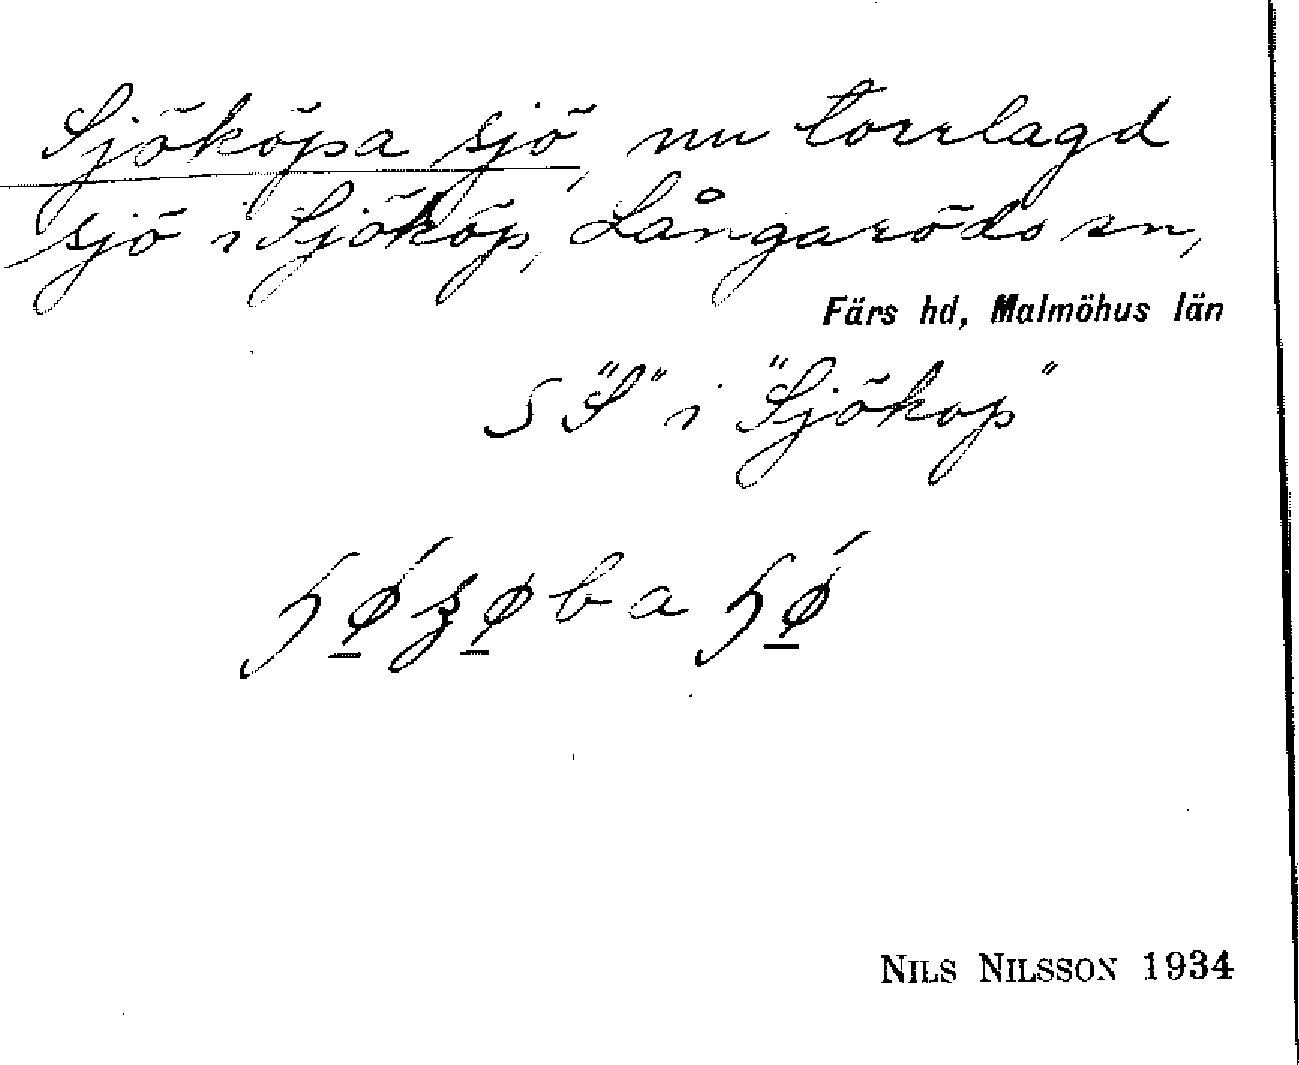 Sjököpa sjö, nu torrlagd
sjö i Sjököp, Långaröds sn,
Färs hd, Malmöhus län
S "S" i "Sjökop"
NILS NILSSON 1934